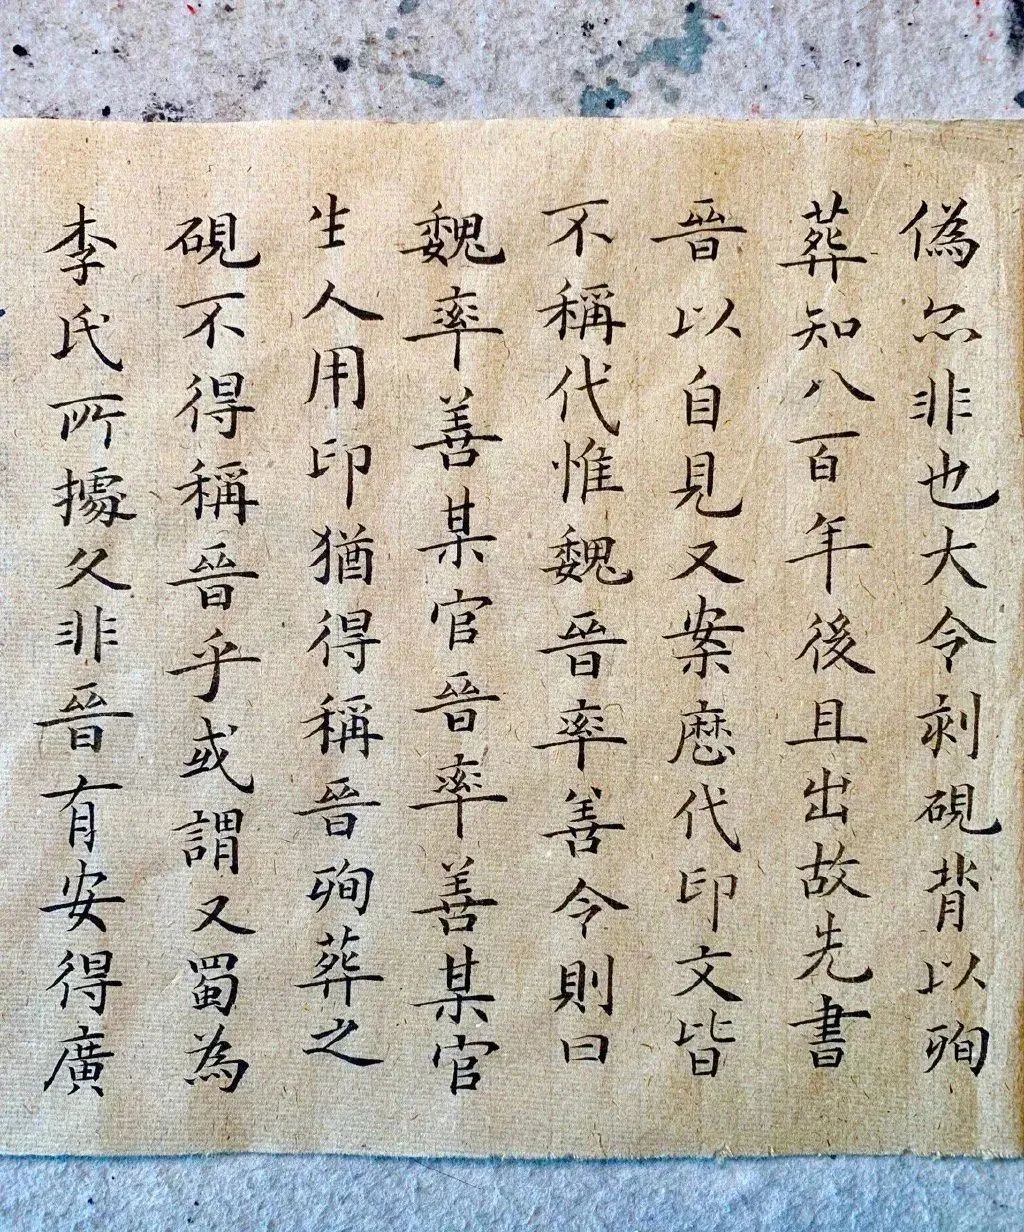 偽尒非也大令刻硯背以殉
葬知八百年後且出故先書
晉以自見又案厯代印文皆
不稱代惟魏晉率善令則曰
魏率善某官晉率善某官
生人用印猶得稱晉殉葬之
硯不得稱晉乎或謂又蜀為
李氏所據久非晉有安得廣